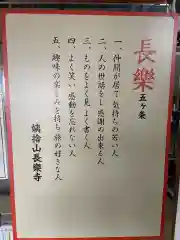 長樂
五ヶ条
一、仲間が居て気持ちの若い人
二、人の世話をし感謝の出来る人
三、ものをよく見よく書く人
四、よく笑い感動を忘れない人
五、趣味の楽しみを持ち旅の好きな人
姨捨山長樂寺